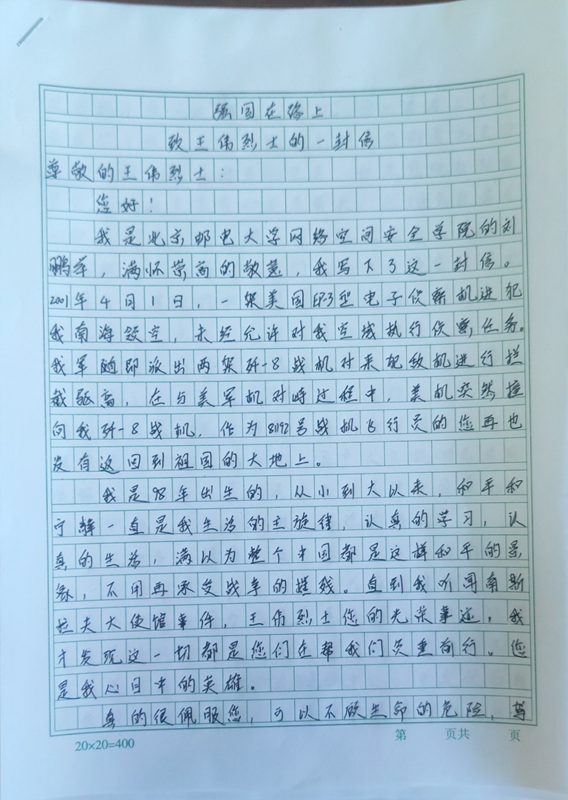 强国在路上
致王伟烈士的一封信
尊敬的王伟烈士：
您好！
我是北京邮电大学网络空间安全学院的刘
鹏 ，满怀崇高的敬意，我写下了这一封信。
2001年4月1日，一架美国EP-3型电子侦察机进犯
我南海领空，未经允许对我空域执行侦察任务。
我军随即派出两架歼-8战机对来犯敌机进行拦
截驱离，在与美军机对峙过程中，美机突然撞
向我歼-8战机，作为81192号战机飞行员的您再也
没有返回到祖国的大地上。
我是98年出生的，从小到大以来，和平和
宁静一直是我生活的主旋律，认真的学习，认
真的生活，满以为整个中国都是这样和平的景
象，不用再承受战争的摧残。直到我听闻南斯
拉夫大使馆事件，王伟烈士您的光荣事迹，我
才发现这一切都是您们在帮我们负重前行。您
是我心目中的英雄。
真的很佩服您，可以不顾生命的危险，
20×20=400
第 页共 页